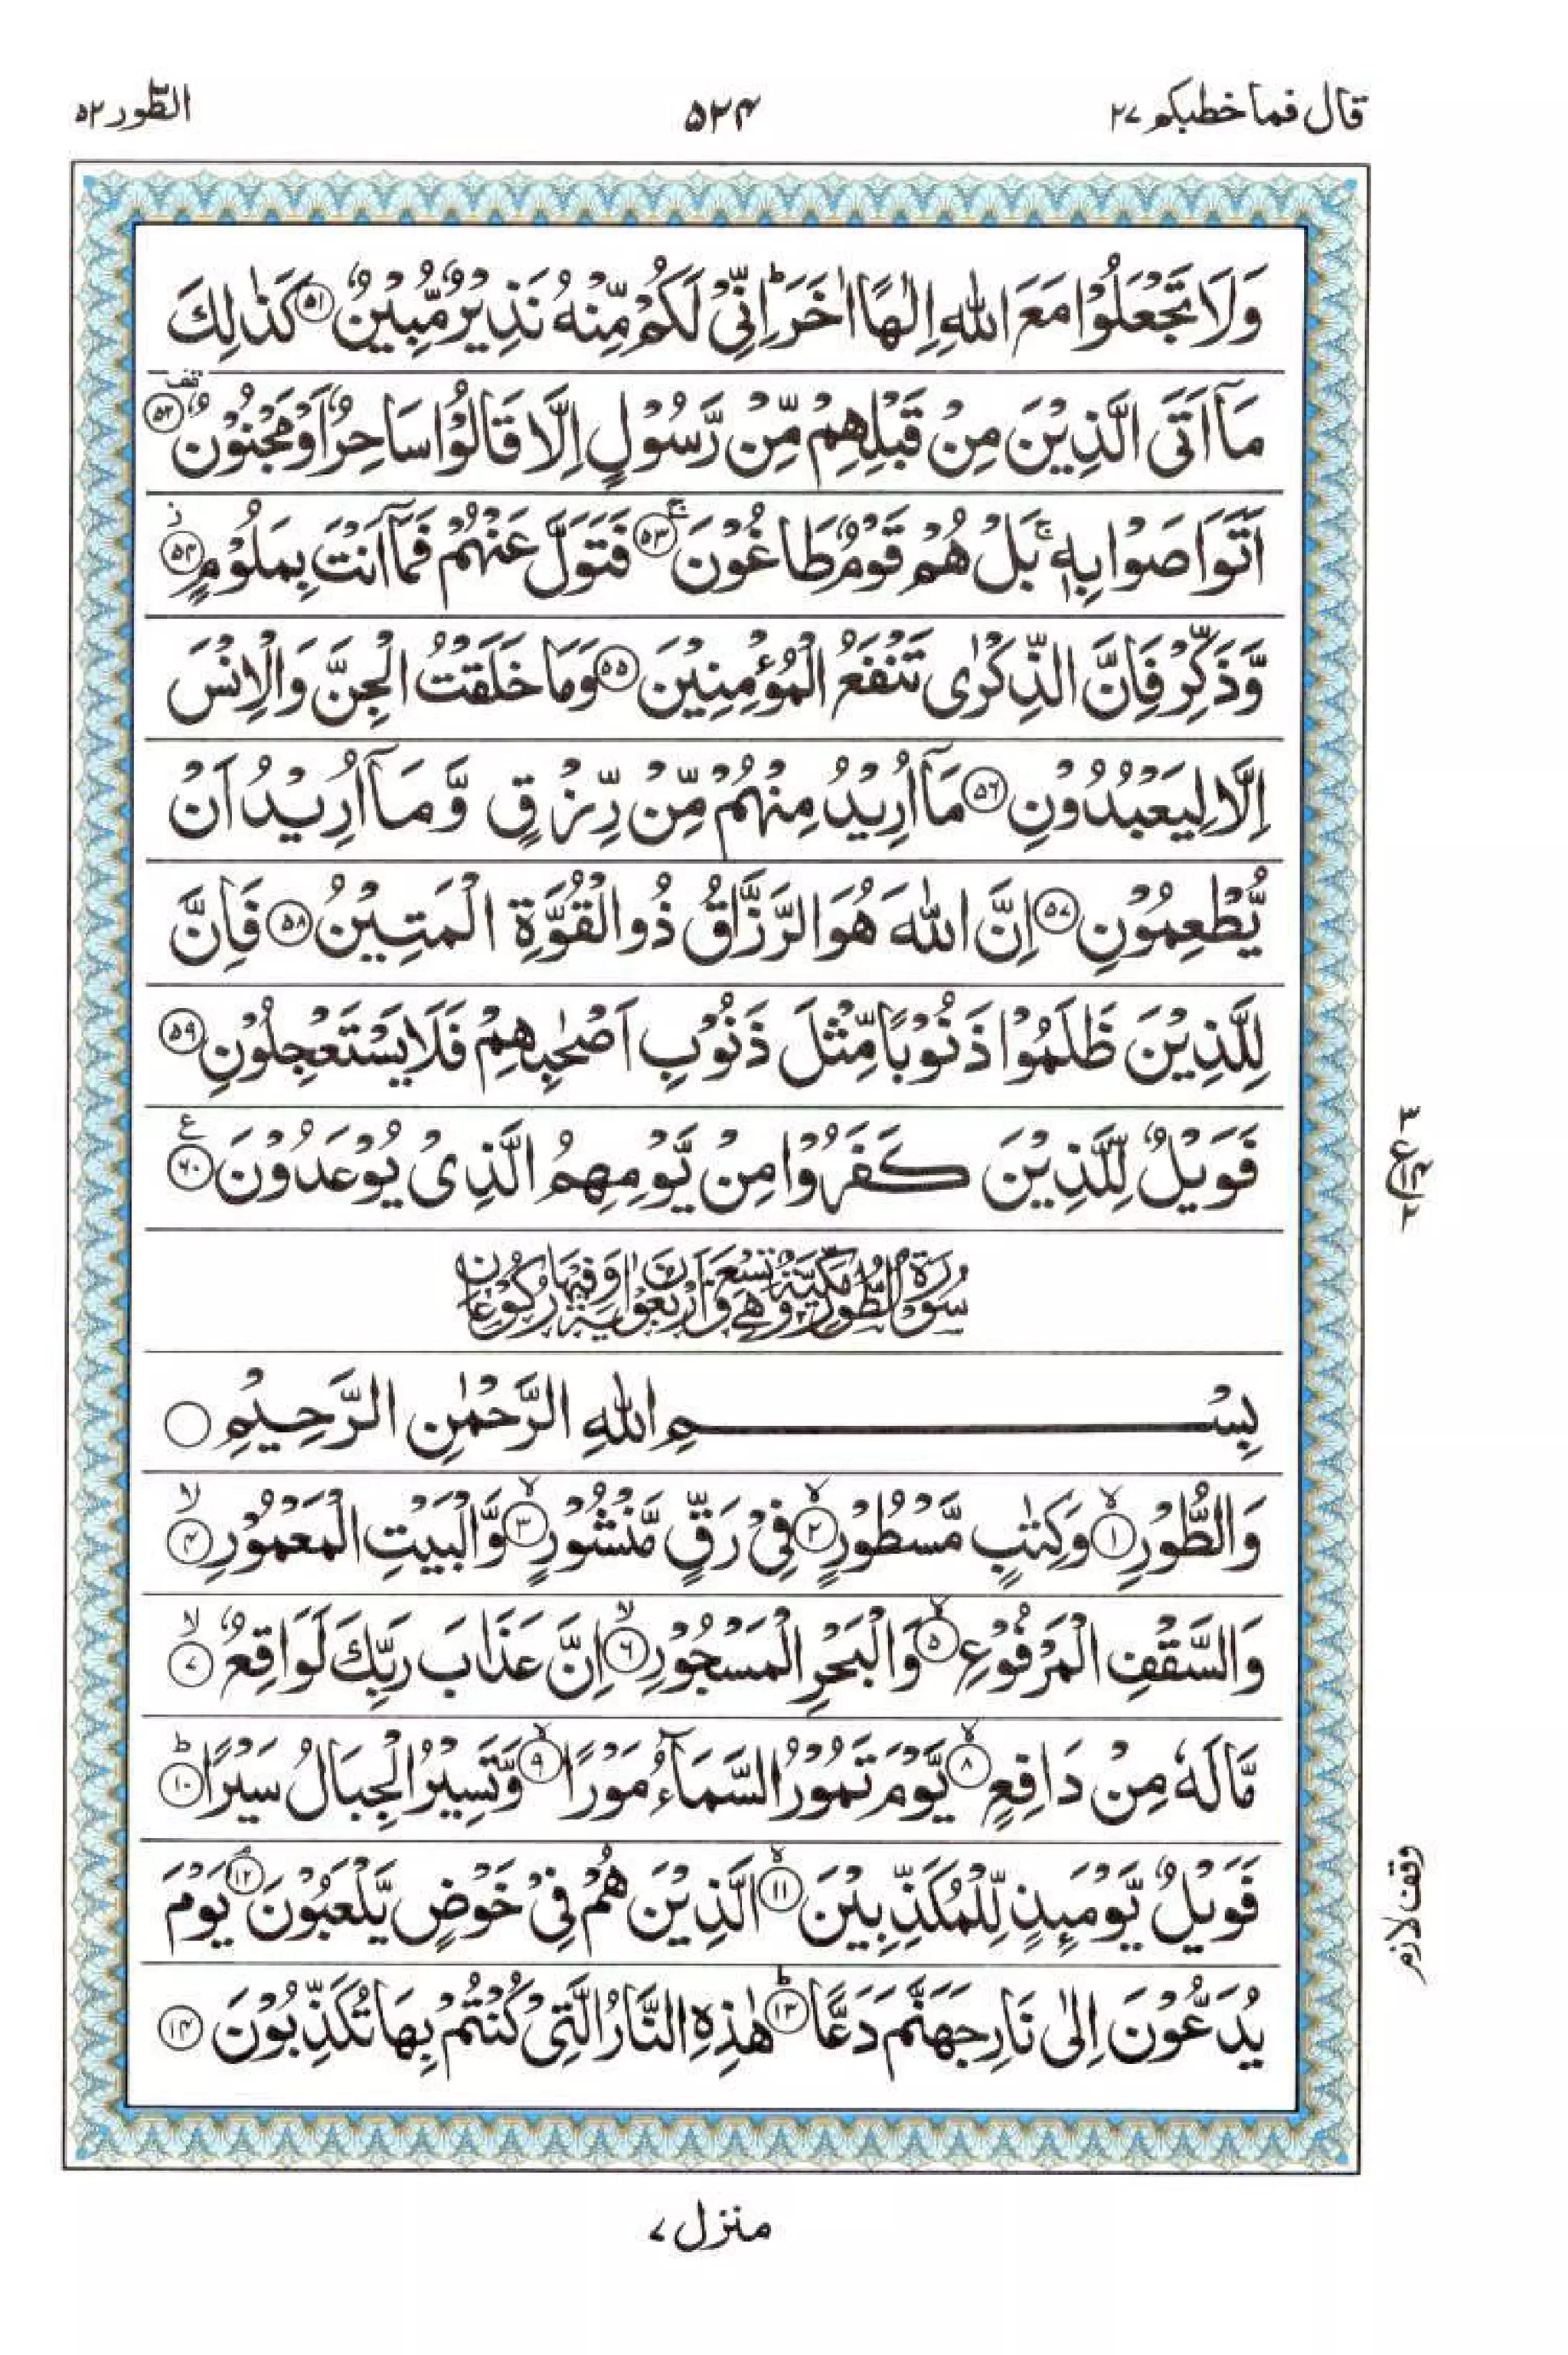 قال فما خطبكم ۲۷
۵۲۴
الطّور ۵۲
وَلَا تَجْعَلُوْا مَعَ اللّٰهِ اِلٰهًا اٰخَرَ ؕ اِنِّىْ لَكُمْ مِّنْهُ نَذِيْرٌ مُّبِيْنٌ ۚ﴿۵۱﴾ كَذٰلِكَ
مَاۤ اَتَى الَّذِيْنَ مِنْ قَبْلِهِمْ مِّنْ رَّسُوْلٍ اِلَّا قَالُوْا سَاحِرٌ اَوْ مَجْنُوْنٌ ۫﴿۵۲﴾
اَتَوَاصَوْا بِهٖ ۚ بَلْ هُمْ قَوْمٌ طَاغُوْنَ ۚ﴿۵۳﴾ فَتَوَلَّ عَنْهُمْ فَمَاۤ اَنْتَ بِمَلُوْمٍ ؗ﴿۵۴﴾
وَّذَكِّرْ فَاِنَّ الذِّكْرٰى تَنْفَعُ الْمُؤْمِنِيْنَ ﴿۵۵﴾ وَمَا خَلَقْتُ الْجِنَّ وَالْاِنْسَ
اِلَّا لِيَعْبُدُوْنِ ﴿۵۶﴾ مَاۤ اُرِيْدُ مِنْهُمْ مِّنْ رِّزْقٍ وَّمَاۤ اُرِيْدُ اَنْ
يُّطْعِمُوْنِ ﴿۵۷﴾ اِنَّ اللّٰهَ هُوَ الرَّزَّاقُ ذُو الْقُوَّةِ الْمَتِيْنُ ﴿۵۸﴾ فَاِنَّ
لِلَّذِيْنَ ظَلَمُوْا ذَنُوْبًا مِّثْلَ ذَنُوْبِ اَصْحٰبِهِمْ فَلَا يَسْتَعْجِلُوْنِ ﴿۵۹﴾
فَوَيْلٌ لِّلَّذِيْنَ كَفَرُوْا مِنْ يَّوْمِهِمُ الَّذِىْ يُوْعَدُوْنَ ﴿۶۰﴾ ع
۳
ع ۱۴
۲
سُوْرَةُ الطُّوْرِ مَكِّيَّةٌ وَّهِىَ تِسْعٌ وَّاَرْبَعُوْنَ اٰيَةً وَّفِيْهَا رُكُوْعَانِ
بِسْمِ اللّٰهِ الرَّحْمٰنِ الرَّحِيْمِ
وَالطُّوْرِ ۙ﴿۱﴾ وَكِتٰبٍ مَّسْطُوْرٍ ۙ﴿۲﴾ فِىْ رَقٍّ مَّنْشُوْرٍ ۙ﴿۳﴾ وَّالْبَيْتِ الْمَعْمُوْرِ ۙ﴿۴﴾
وَالسَّقْفِ الْمَرْفُوْعِ ۙ﴿۵﴾ وَالْبَحْرِ الْمَسْجُوْرِ ۙ﴿۶﴾ اِنَّ عَذَابَ رَبِّكَ لَوَاقِعٌ ۙ﴿۷﴾
مَّا لَهٗ مِنْ دَافِعٍ ۙ﴿۸﴾ يَّوْمَ تَمُوْرُ السَّمَآءُ مَوْرًا ۙ﴿۹﴾ وَّتَسِيْرُ الْجِبَالُ سَيْرًا ؕ﴿۱۰﴾
فَوَيْلٌ يَّوْمَئِذٍ لِّلْمُكَذِّبِيْنَ ۙ﴿۱۱﴾ الَّذِيْنَ هُمْ فِىْ خَوْضٍ يَّلْعَبُوْنَ ۘ﴿۱۲﴾ يَوْمَ
وقف لازم
يُدَعُّوْنَ اِلٰى نَارِ جَهَنَّمَ دَعًّا ؕ﴿۱۳﴾ هٰذِهِ النَّارُ الَّتِىْ كُنْتُمْ بِهَا تُكَذِّبُوْنَ ﴿۱۴﴾
منزل ۷